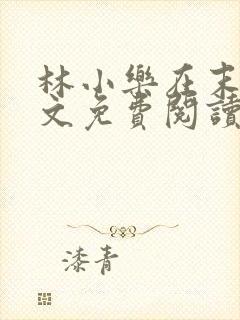 林小樂在末
文免費閱讀
漆青